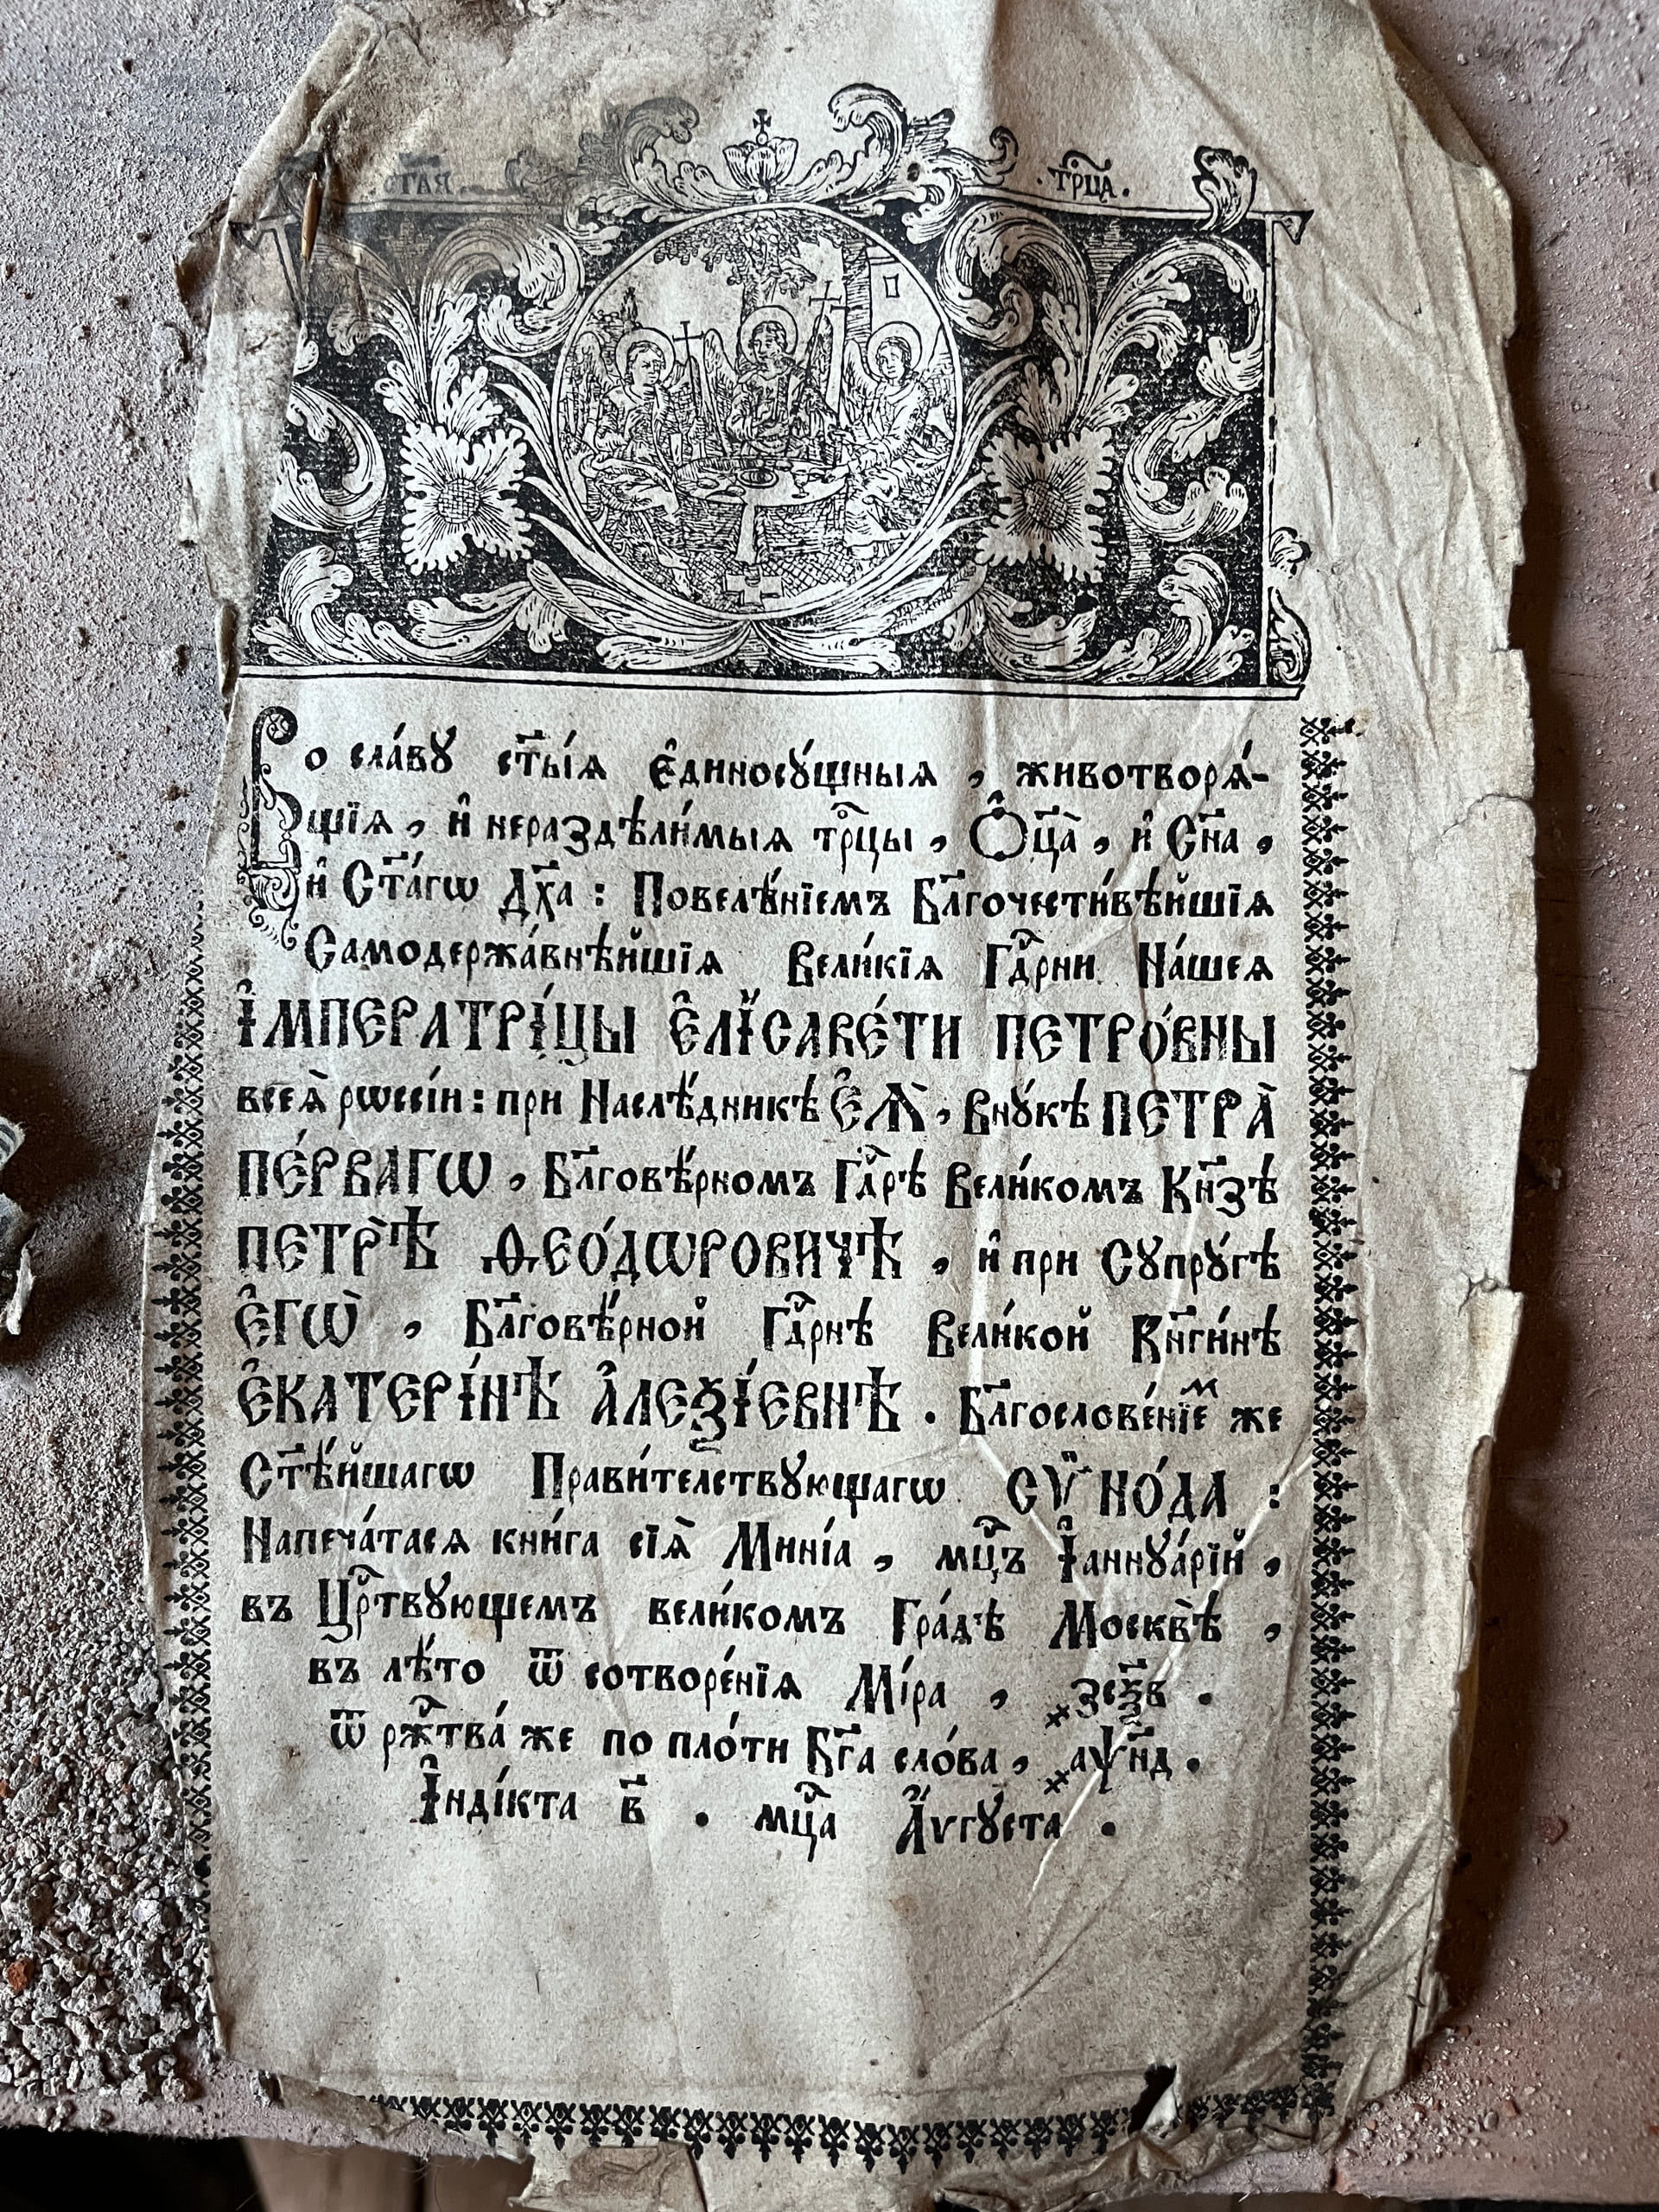 ст҃а́ѧ трⷪ҇ца.
Во сла́вꙋ ст҃ы́ѧ є҆диносꙋ́щныѧ , животворѧ́-
щїѧ , и҆ нераздѣли́мыѧ трⷪ҇цы , Ѻ҆ц҃а̀ , и҆ Сн҃а ,
и҆ Ст҃а́гѡ Дх҃а : Повелѣ́нїемъ Бл҃гочести́вѣйшїѧ
Самодержа́внѣйшїѧ Вели́кїѧ Гдⷭ҇рни На́шеѧ
І҆МПЕРАТРІ́ЦЫ Є҆ЛІСАВЕ́ТИ ПЕТРО́ВНЫ
всеѧ̀ рѡссі́и : при Наслѣ́дникѣ Є҆Ѧ̀ , Внꙋ́кѣ ПЕТРА̀
ПЕ́РВАГѠ , Бл҃говѣ́рномъ Гдⷭ҇рѣ Вели́комъ Кн҃зѣ
ПЕТРѢ̀ Ѳ̑ЕО́ДѠРОВИЧѢ , и҆ при Сꙋпрꙋ́гѣ
Є҆ГѠ̀ , Бл҃говѣ́рной Гдⷭ҇рнѣ Вели́кой Кн҃ги́нѣ
Є҆КАТЕРІ́НѢ А҆ЛЕѮІ́ЕВНѢ . Бл҃гослове́нїеⷨ же
Ст҃ѣ́йшагѡ Прави́телствꙋющагѡ СѴ̈НО́ДА :
Напеча́тасѧ кни́га сїѧ̀ Мині́а , мцⷭ҇ъ І҆аннꙋа́рїй ,
въ Црⷭ҇твꙋющемъ вели́комъ Гра́дѣ Москвѣ̀ ,
въ лѣ́то ѿ сотворе́нїѧ Мі́ра , ҂зсѯ҃в .
ѿ ржⷭ҇тва́ же по пло́ти Бг҃а сло́ва , ҂аѱн҃д .
І҆нді́кта в҃ . мцⷭ҇а А҆́ѵгꙋста .